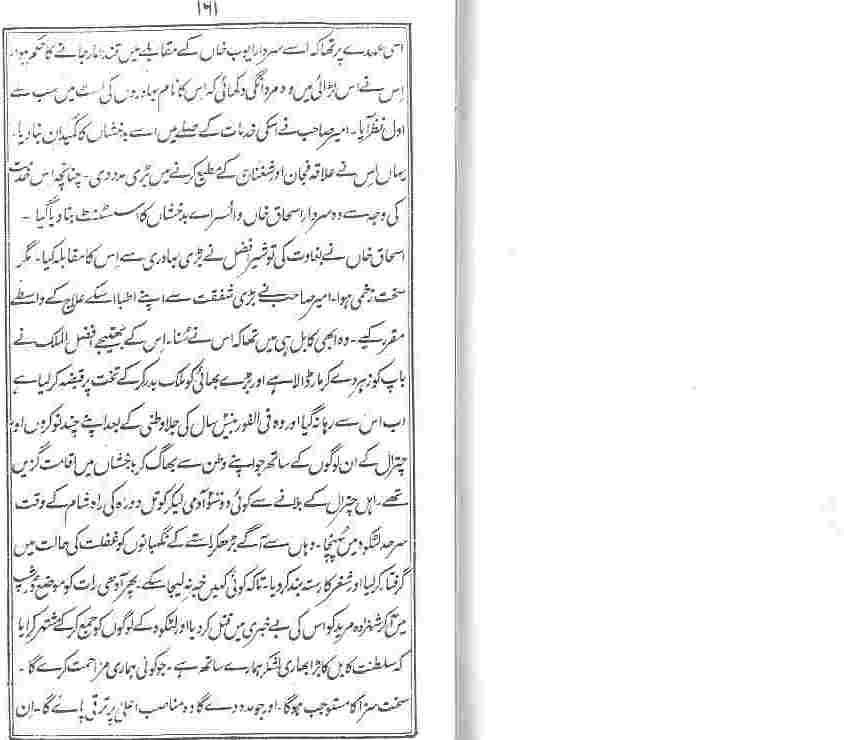 ۱۶۱
اسی عہدے پر تھا کہ اسے سردار ایوب خاں کے مقابلے میں قندہار جانے کا حکم ہوا۔
اِس نے اس لڑائی میں وہ مردانگی دکھائی کہ اِس کا نام بہادروں کی لسٹ میں سب سے
اول نظر آیا۔ امیر صاحب نے اسکی خدمات کے صلے میں اسے بدخشاں کا کمیدان بنا دیا۔
یہاں اِس نے علاقہ اور شغنان کے مطیع کرنے میں بڑی مدد دی۔ چنانچہ اس خدمت
کی وجہ سے وہ سردار اسحاق خاں وائسراے بدخشاں کا اسسٹنٹ بنا دیا گیا۔
اسحاق خاں نے بغاوت کی تو شیر افضل نے بڑی بہادری سے اِس کا مقابلہ کیا۔ مگر
سخت زخمی ہوا۔ امیر صاحب نے بڑی شفقت سے اپنے اطبا اسکے علاج کے واسطے
مقرر کیے۔ وہ ابھی کابل ہی میں تھا کہ اس نے سُنا۔ اِس کے بھتیجے افضل الملک نے
باپ کو زہر دے کر مار ڈالا ہے اور بڑے بھائی کو ملک بدر کر کے تخت پر قبضہ کر لیا ہے
اب اس سے رہا نہ گیا اور وہ فی الفور بیس سال کی جلا وطنی کے بعد اپنے چند نوکروں اور
چترال کے ان لوگوں کے ساتھ جو اپنے وطن سے بھاگ کر بدخشاں میں اقامت گزیں
تھے۔ اہل چترال کے بلانے سے کوئی دو سو آدمی لیکر کوتل دورہ کی راہ شام کے وقت
سرحد لٹکوہ میں پہنچا۔ وہاں سے آگے بڑھکر راستے کے نگہبانوں کو غفلت کی حالت میں
گرفتار کر لیا اور شغر کا رستہ بند کر دیا۔ تاکہ کوئی کہیں خبر نہ لیجا سکے۔ پھر آدھی رات کو موضع
میں آکر شہزادہ مرید کو اس کی بے خبری میں قتل کر دیا اور لٹکوہ کے لوگوں کو جمع کر کے مشتہر کرایا
کہ سلطنت کابل کا بڑا بھاری لشکر ہمارے ساتھ ہے۔ جو کوئی ہماری مزاحمت کرے گا۔
سخت سزا کا مستوجب ہوگا۔ اور جو مدد دے گا وہ مناصب اعلیٰ پر ترقی پائے گا۔ اِن